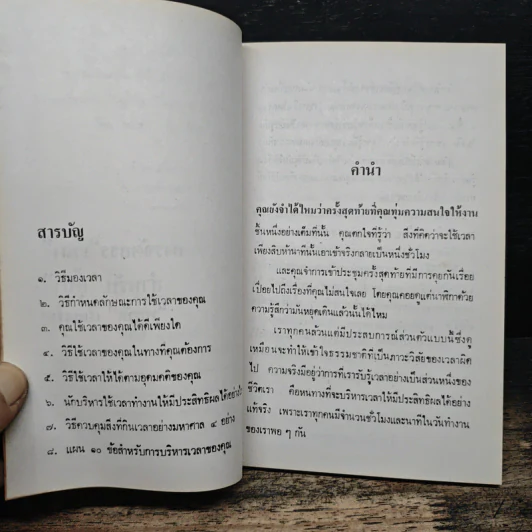 สารบัญ
๑. วิธีมองเวลา
๒. วิธีกำหนดลักษณะการใช้เวลาของคุณ
๓. คุณใช้เวลาของคุณได้ดีเพียงใด
๔. วิธีใช้เวลาของคุณในทางที่คุณต้องการ
๕. วิธีใช้เวลาให้ได้ตามอุดมคติของคุณ
๖. นักบริหารใช้เวลาทำงานให้มีประสิทธิผลได้อย่างไร
๗. วิธีควบคุมสิ่งที่กินเวลาอย่างมหาศาล ๔ อย่าง
๘. แผน ๑๐ ข้อสำหรับการบริหารเวลาของคุณ
คำนำ
คุณยังจำได้ไหมว่าครั้งสุดท้ายที่คุณทุ่มความสนใจให้งาน
ชิ้นหนึ่งอย่างเต็มที่นั้น คุณตกใจที่รู้ว่า สิ่งที่คิดว่าจะใช้เวลา
เพียงสิบห้านาทีนั้นเอาเข้าจริงกลายเป็นหนึ่งชั่วโมง
และคุณจำการเข้าประชุมครั้งสุดท้ายที่มีการคุยกันเรื่อย
เปื่อยไปถึงเรื่องที่คุณไม่สนใจเลย โดยคุณคอยดูแต่นาฬิกาด้วย
ความรู้สึกว่ามันหยุดเดินแล้วนั้นได้ไหม
เราทุกคนล้วนแต่มีประสบการณ์ส่วนตัวแบบนี้ซึ่งดู
เหมือนจะทำให้เข้าใจธรรมชาติที่เป็นภาวะวิสัยของเวลาผิด
ไป ความจริงมีอยู่ว่าการที่เรารับรู้เวลาอย่างเป็นส่วนหนึ่งของ
ชีวิตเรา คือหนทางที่จะบริหารเวลาให้มีประสิทธิผลได้อย่าง
แท้จริง เพราะเราทุกคนมีจำนวนชั่วโมงและนาทีในวันทำงาน
ของเราพอ ๆ กัน